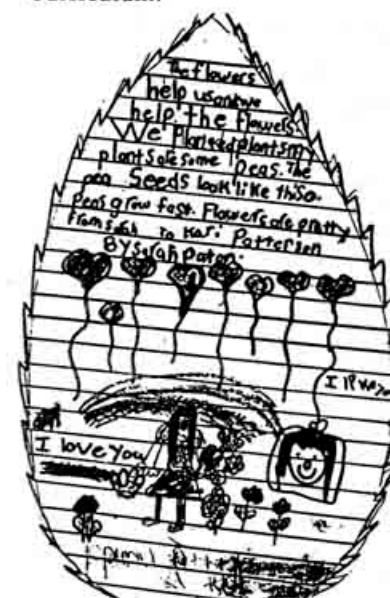 The flowers
help us and we
help the flowers
We planted plants my
plants are some peas. The
pea seeds look like this o.
peas grow fast. Flowers are pretty
from sarah to Kari Patterson
BY sarah paton.
I like you
I love you